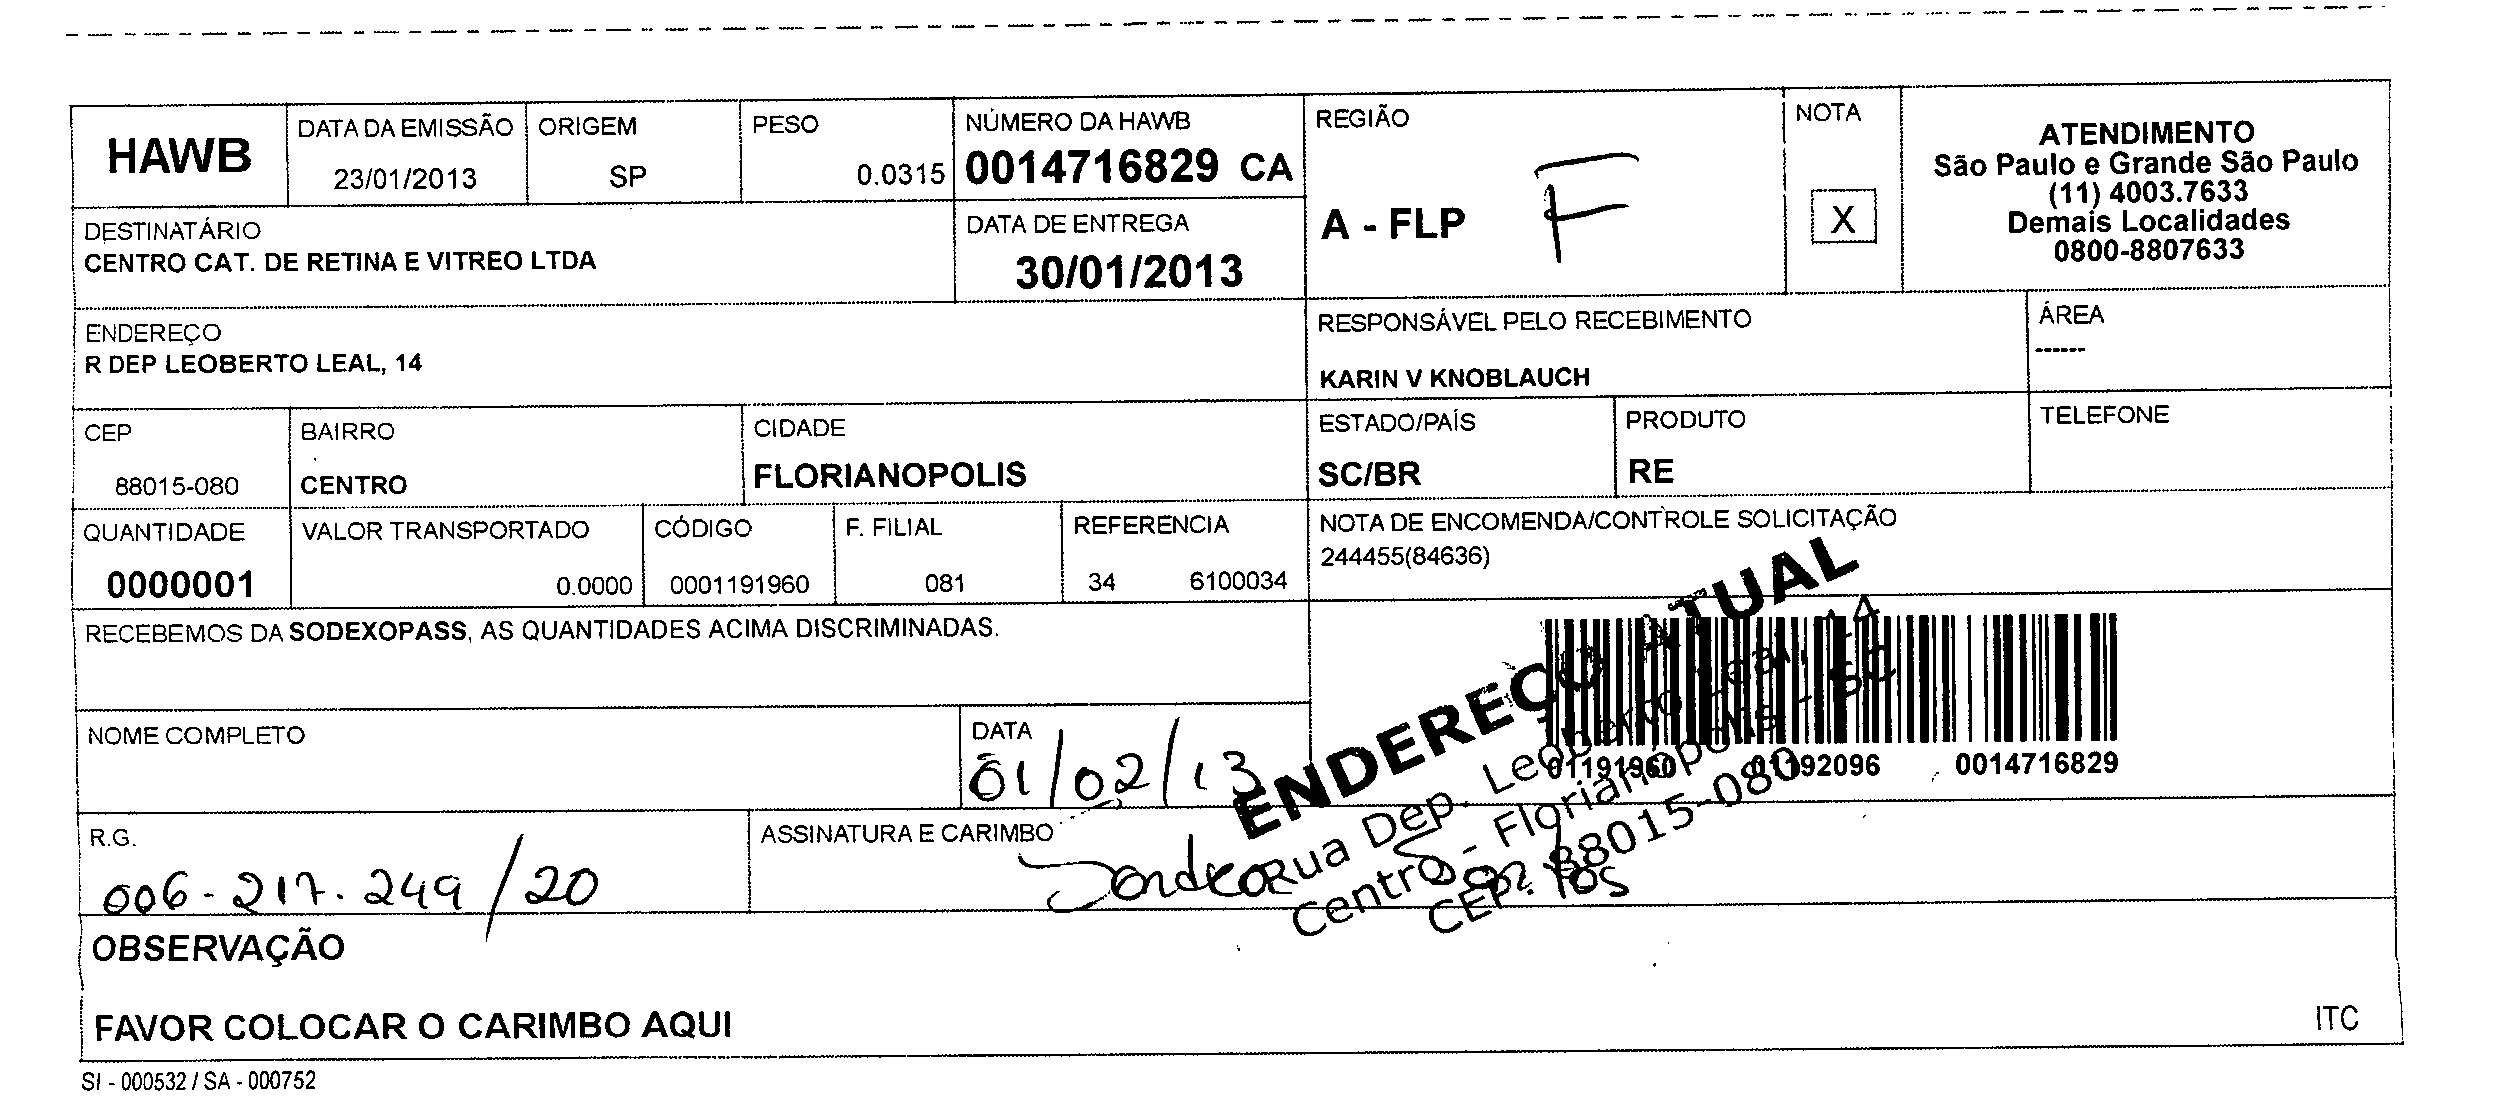 HAWB
DATA DA EMISSÃO
23/01/2013
ORIGEM
SP
PESO
0.0315
NÚMERO DA HAWB
0014716829 CA
REGIÃO
A - FLP F
NOTA
X
ATENDIMENTO
São Paulo e Grande São Paulo
(11) 4003.7633
Demais Localidades
0800-8807633
DESTINATÁRIO
CENTRO CAT. DE RETINA E VITREO LTDA
DATA DE ENTREGA
30/01/2013
ENDEREÇO
R DEP LEOBERTO LEAL, 14
RESPONSÁVEL PELO RECEBIMENTO
KARIN V KNOBLAUCH
ÁREA
------
CEP
88015-080
BAIRRO
CENTRO
CIDADE
FLORIANOPOLIS
ESTADO/PAÍS
SC/BR
PRODUTO
RE
TELEFONE
QUANTIDADE
0000001
VALOR TRANSPORTADO
0.0000
CÓDIGO
0001191960
F. FILIAL
081
REFERENCIA
34 6100034
NOTA DE ENCOMENDA/CONTROLE SOLICITAÇÃO
244455(84636)
RECEBEMOS DA SODEXOPASS, AS QUANTIDADES ACIMA DISCRIMINADAS.
NOME COMPLETO
DATA
01/02/13
01191960 01192096 0014716829
ENDEREÇO ATUAL
Rua Dep. Leoberto Leal, 14
Centro - Florianópolis - SC
CEP: 88015-080
R.G.
006-217.249/20
ASSINATURA E CARIMBO
OBSERVAÇÃO
FAVOR COLOCAR O CARIMBO AQUI
ITC
SI - 000532 / SA - 000752